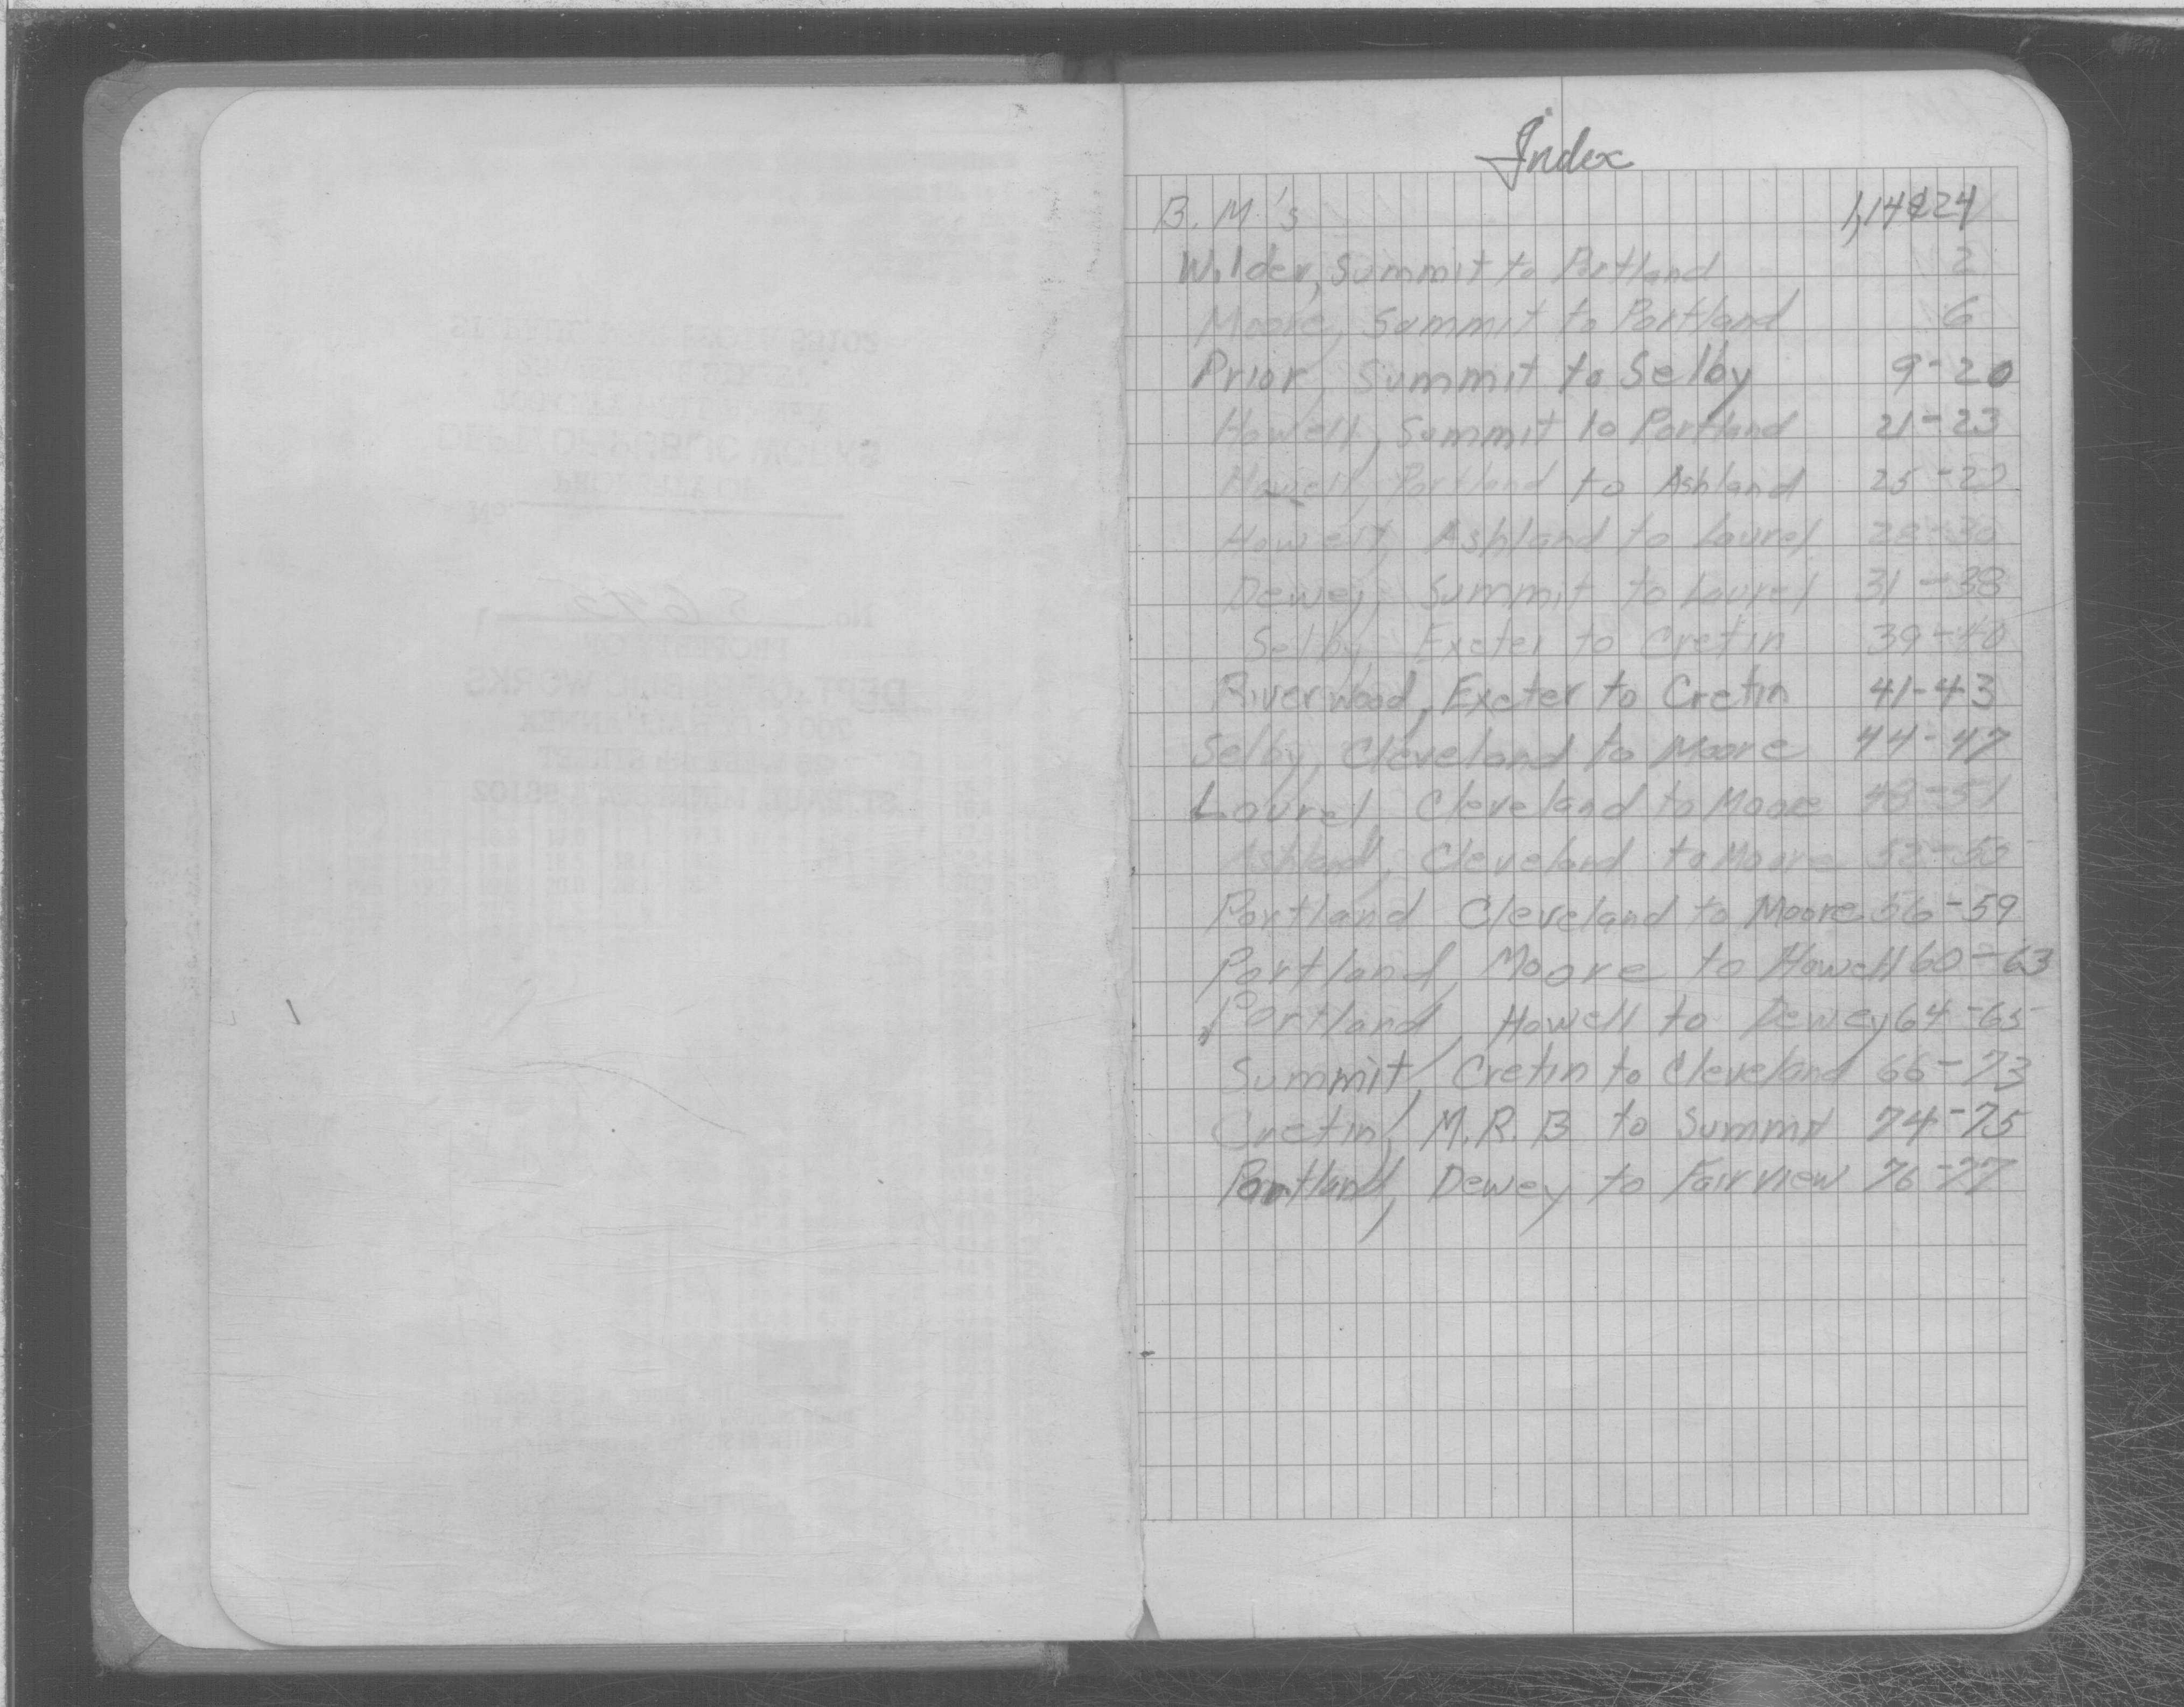 Index
B.M's 1,14&24
Wilder, Summit to Portland 2
Moore, Summit to Portland 6
Prior, Summit to Selby 9-20
Howell, Summit to Portland 21-23
Howell, Portland to Ashland 25-27
Howell, Ashland to Laurel 28-30
Dewey, Summit to Laurel 31-38
Selby, Exeter to Cretin 39-40
Riverwood, Exeter to Cretin 41-43
Selby, Cleveland to Moore 44-47
Laurel, Cleveland to Moore 48-51
Ashland, Cleveland to Moore 52-55
Portland Cleveland to Moore 56-59
Portland, Moore to Howell 60-63
Portland, Howell to Dewey 64-65
Summit, Cretin to Cleveland 66-73
Cretin, M.R.B to Summit 74-75
Portland, Dewey to Fairview 76-77